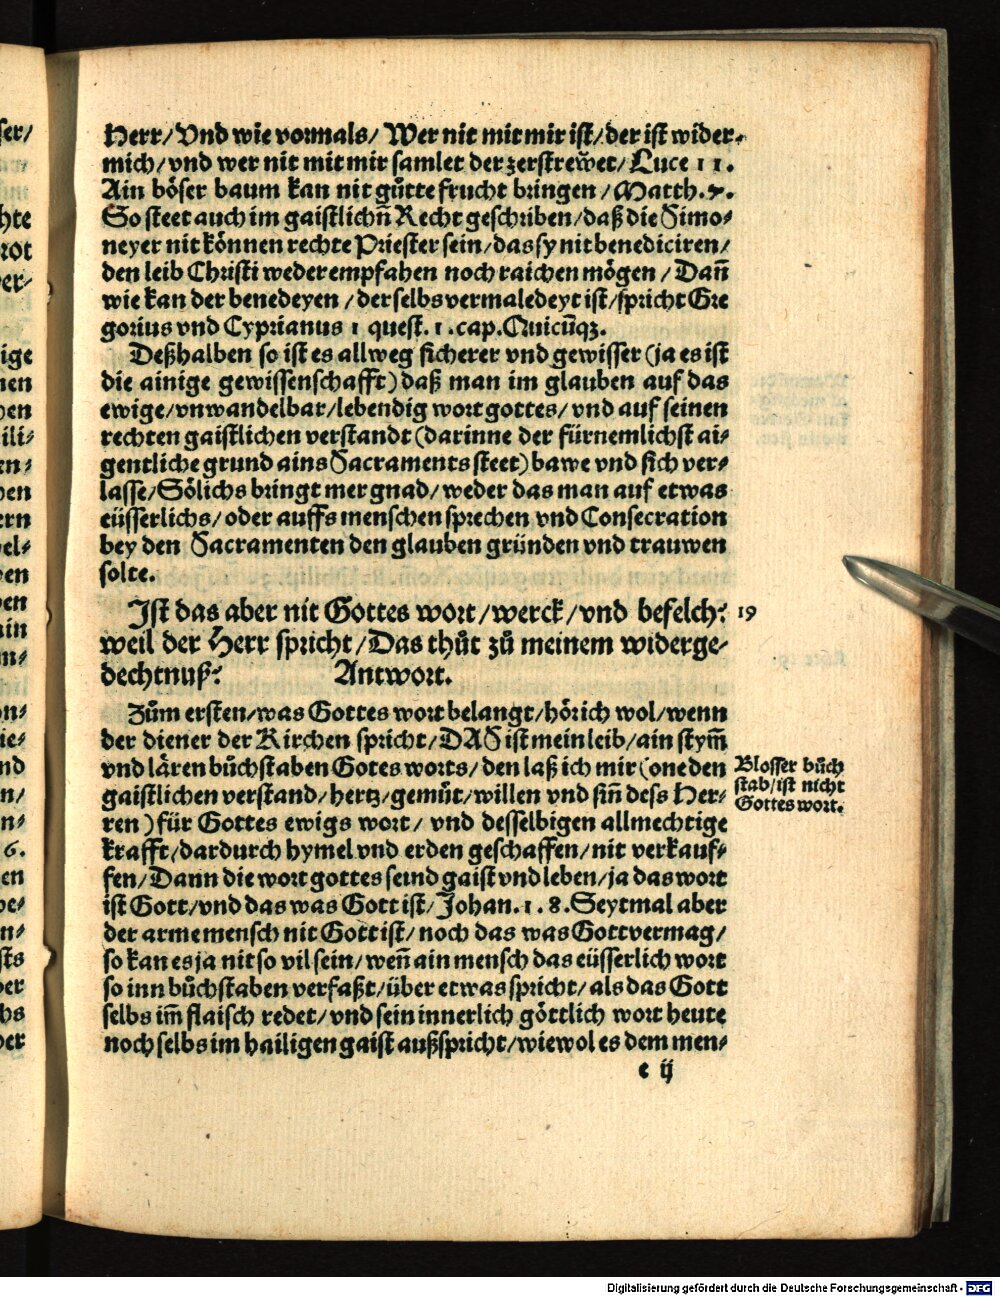 Herr/ Vnd wie vormals/ Wer nit mit mir ist/ der ist wider
mich/ vnd wer nit mit mir samlet der zerstreẅet/ Luce 11.
Ain böser baum kan nit gůtte frucht bringen/ Matth. 7.
So steet auch im gaistlichñ Recht geschriben/ daß die Simo⸗
neyer nit können rechte Priester sein/ das sy nit benediciren/
den leib Christi weder empfahen noch raichen mögen/ Dañ
wie kan der benedeyen/ der selbs vermaledeyt ist/ spricht Gre
gorius vnd Cyprianus 1 quest. 1. cap. Quicũqꝫ.
Deßhalben so ist es allweg sicherer vnd gewisser (ja es ist
die ainige gewissenschafft) daß man im glauben auf das
ewige/ vnwandelbar/ lebendig wort gottes/ vnd auf seinen
rechten gaistlichen verstandt (darinne der fürnemlichst ai⸗
gentliche grund ains Sacraments steet) bawe vnd sich ver⸗
lasse/ Sölichs bringt mer gnad/ weder das man auf etwas
eüsserlichs/ oder auffs menschen sprechen vnd Consecration
bey den Sacramenten den glauben gründen vnd trauwen
solte.
Jst das aber nit Gottes wort/ werck/ vnd befelch? 19
weil der Herr spricht/ Das thůt zů meinem widerge⸗
dechtnuß? Antwort.
Zům ersten/ was Gottes wort belangt/ hör ich wol/ wenn
der diener der Kirchen spricht/ DAS ist mein leib/ ain stym̃
vnd lären bůchstaben Gotes worts/ den laß ich mir (one den
gaistlichen verstand/ hertz/ gemüt/ willen vnd sin̄ dess Her⸗
ren) für Gottes ewigs wort/ vnd desselbigen allmechtige
krafft/ dardurch hymel vnd erden geschaffen/ nit verkauf⸗
fen/ Dann die wort gottes seind gaist vnd leben/ ja das wort
ist Gott/ vnd das was Gott ist/ Johan. 1. 8. Seytmal aber
der arme mensch nit Gott ist/ noch das was Gott vermag/
so kan es ja nit so vil sein/ wen̄ ain mensch das eüsserlich wort
so inn bůchstaben verfaßt/ über etwas spricht/ als das Gott
selbs im̃ flaisch redet/ vnd sein innerlich göttlich wort heute
noch selbs im hailigen gaist außspricht/ wiewol es dem men⸗
e ij
Blosser bůch
stab/ ist nicht
Gottes wort.
Digitalisierung gefördert durch die Deutsche Forschungsgemeinschaft - DFG